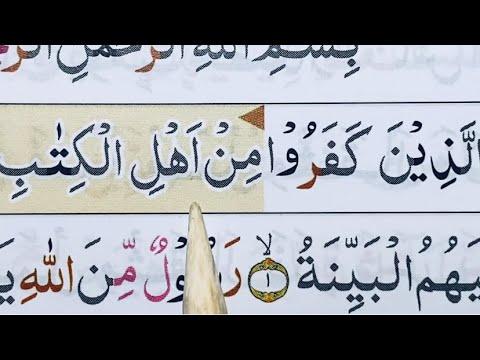 بِسْمِ اللّٰهِ الرَّحْمٰنِ الرَّ
الَّذِيْنَ كَفَرُوْا مِنْ اَهْلِ الْكِتٰبِ
يَهُمُ الْبَيِّنَةُ ۙ‏ ١ رَسُوْلٌ مِّنَ اللّٰهِ يَ